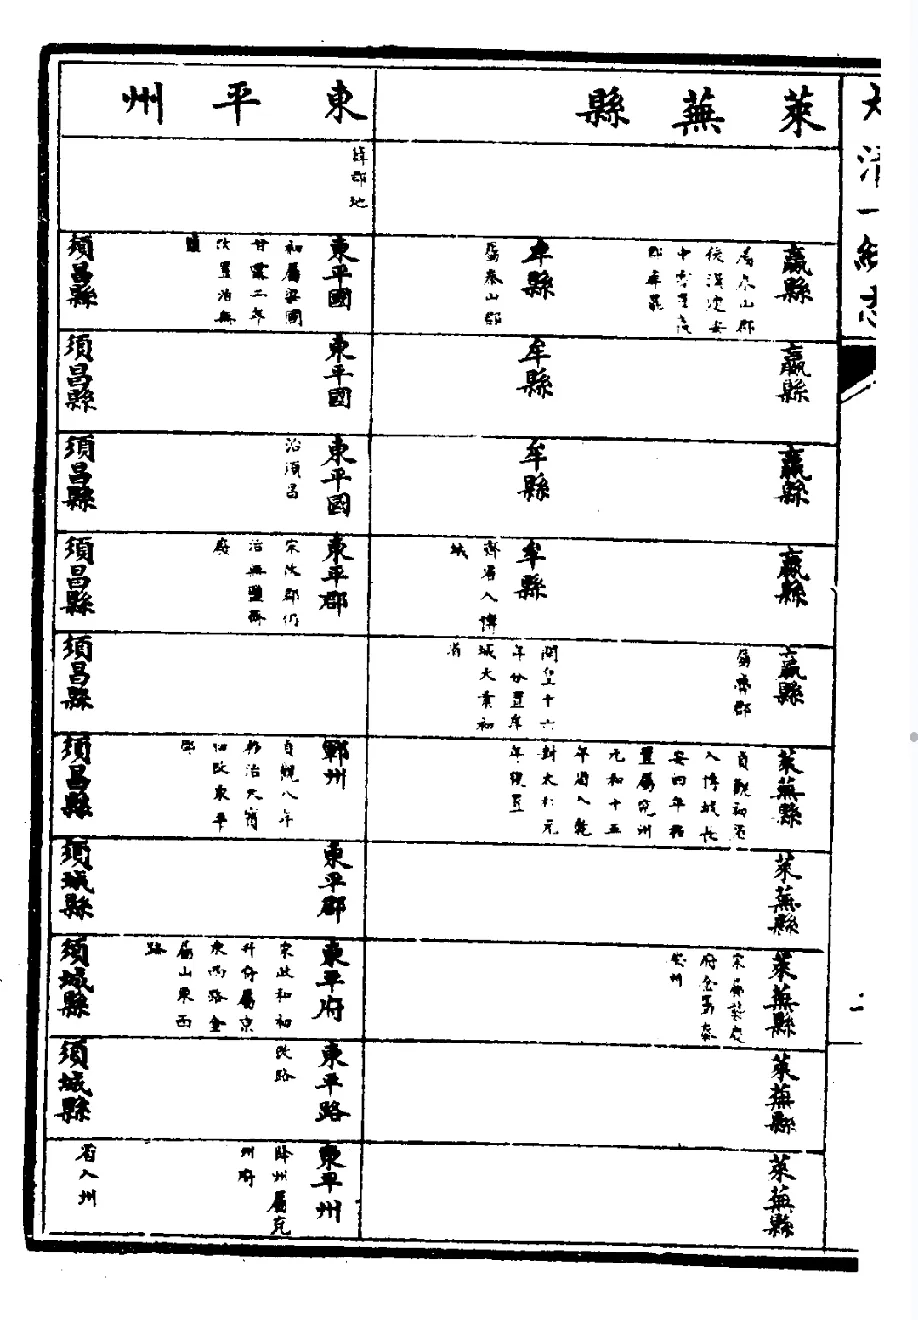 大清一統志
二
萊蕪縣
東平州
薛郡地
嬴縣
屬泰山郡
後漢建安
中
郡尋罷
牟縣
屬泰山郡
東平國
初屬梁國
甘露二年
改置治無
鹽
須昌縣
嬴縣
牟縣
東平國
須昌縣
嬴縣
牟縣
東平國
治須昌
須昌縣
嬴縣
牟縣
齊省入博
城
東平郡
宋改郡仍
治無鹽齊
廢
須昌縣
嬴縣
屬魯郡
開皇十六
年分置牟
城大業初
省
須昌縣
萊蕪縣
貞觀初省
入博城長
安四年復
置屬兗州
元和十五
年省入乾
封太和元
年復置
鄆州
貞觀八年
移治天寶
初改東平
郡
須昌縣
萊蕪縣
東平郡
須城縣
萊蕪縣
宋屬襲慶
府金屬泰
安州
東平府
宋政和初
升府屬京
東西路金
屬山東西
路
須城縣
萊蕪縣
東平路
改路
須城縣
萊蕪縣
東平州
降州屬兗
州府
省入州